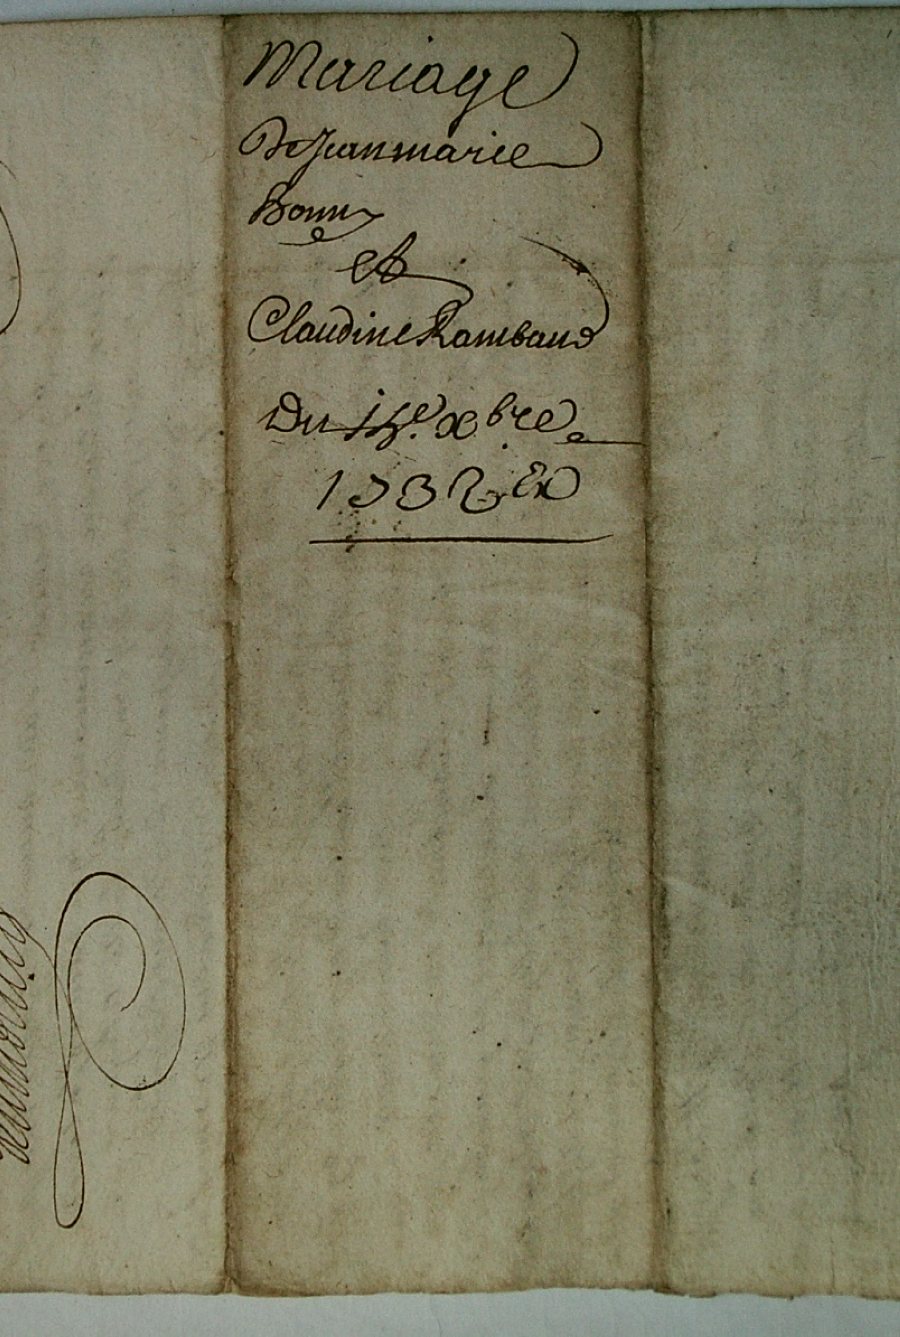 Mariage
De Jeanmarie
Bonny
et
Claudine Rambaud
Du 15e. xbre
1732